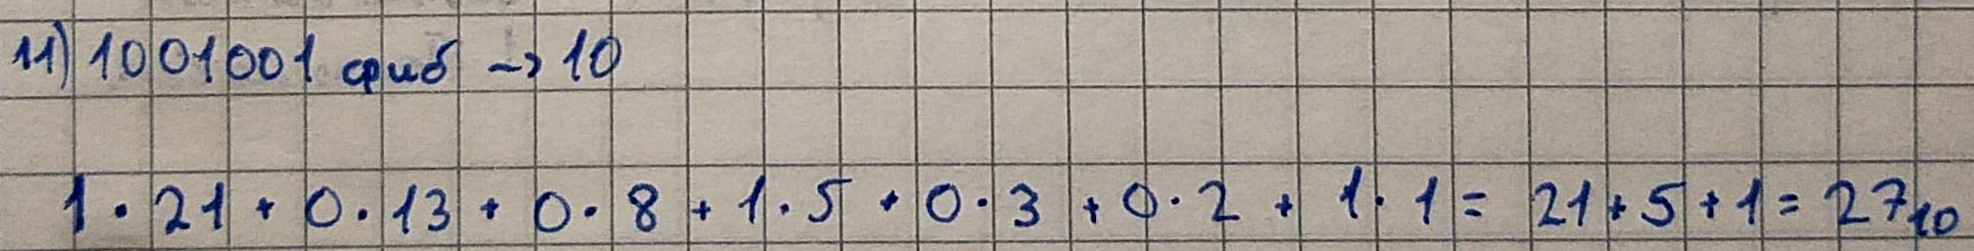 11) 1001001 фиб -> 10
1·21+0·13+0·8+1·5+0·3+0·2+1·1=21+5+1=27₁₀